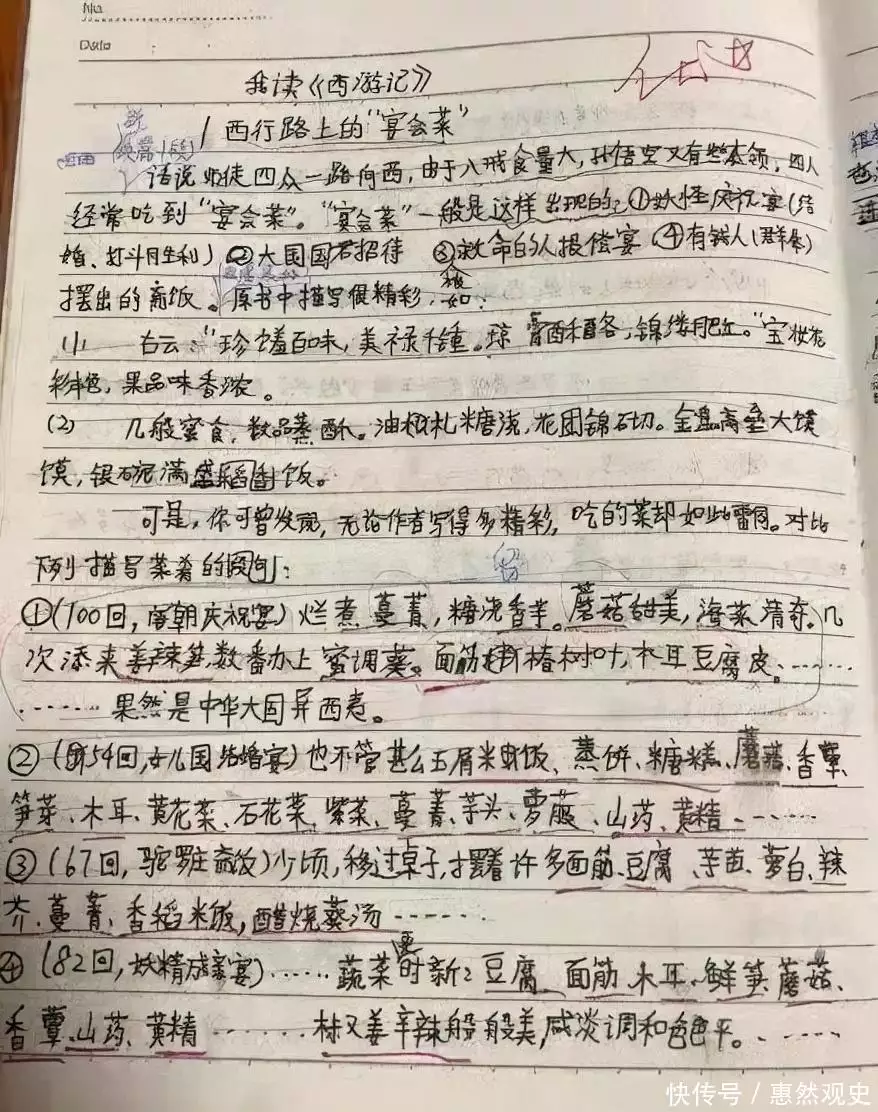 No.
Date
我读《西游记》
西行路上的“宴会菜”
话说师徒四众一路向西,由于八戒食量大,孙悟空又有些本领,四人
经常吃到“宴会菜”。“宴会菜”一般是这样出现的:①妖怪庆祝宴(结
婚、打斗胜利)②大国国君招待 ③救命的人报偿宴 ④有钱人(群众)
摆出的斋饭。原书中描写很精彩,如:
(1) 右云:“珍馐百味,美禄千钟。琼膏酥酪,锦缕肥红。”宝妆花
彩艳,果品味香浓。
(2) 几般蜜食,数品蒸酥。油札糖浇,花团锦砌。金盘高垒大馍
馍,银碗满盛稻香饭。
可是,你可曾发现,无论作者写得多精彩,吃的菜却如此雷同。对比
下列描写菜肴的词句:
①(100回,唐朝庆祝宴)烂煮蔓菁,糖浇香芋。蘑菇甜美,海菜清奇。几
次添来姜辣笋,数番办上蜜调葵。面筋椿树叶,木耳豆腐皮。……
……果然是中华大国异西夷。
②(第54回,女儿国结婚宴)也不管甚么玉屑米饭、蒸饼、糖糕、蘑菇、香蕈、
笋芽、木耳、黄花菜、石花菜、紫菜、蔓菁、芋头、萝菔、山药、黄精……
③(67回,驼罗庄斋饭)少顷,移过桌子,摆着许多面筋、豆腐、芋苗、萝白、辣
芥、蔓菁、香稻米饭,醋烧葵汤……
④(82回,妖精成亲宴)……蔬菜更时新:豆腐、面筋、木耳、鲜笋、蘑菇、
香蕈、山药、黄精……椒姜辛辣般般美,咸淡调和色色平。……
快传号/惠然观史